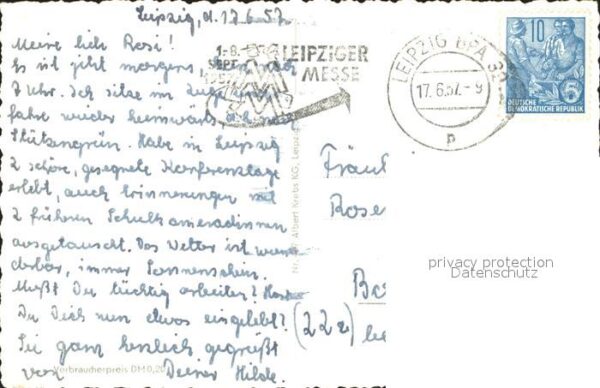 Leipzig, d. 17.6.57
Meine lieb Rosi!
Es ist jetzt morgens,
7 Uhr. Ich sitze im Zuge
fahre wieder heimwärts,
Stützengrün. Habe in Leipzig
2 schöne, gesegnete Konferenztage
erlebt, auch Erinnerungen mit
2 früheren Schulkameradinnen
ausgetauscht. Das Wetter ist wun
derbar, immer Sonnenschein.
Mußt Du tüchtig arbeiten? Hast
Du Dich nun etwas eingelebt?
Sei ganz herzlich gegrüßt
von Deiner Hilde
Verbraucherpreis DM 0,20
Albert Krebs KG., Leipz
1.-8.
SEPT.
1957
LEIPZIGER
MESSE
MM
LEIPZIG BPA 32
17.6.57.-9
p
10
5
DEUTSCHE
DEMOKRATISCHE REPUBLIK
Fräul
Rose
(22a)
privacy protection
Datenschutz